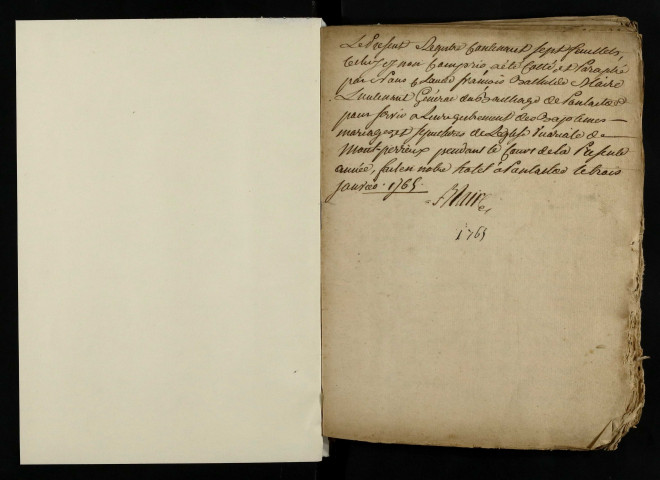 Le Present Registre Contenant sept feuillets,
Celui cy non Compris, a été Cotté, et Paraphé
par Nous Claude françois Mathilde Blaire
Lieutenant Général du Bailliage de Pontarlier
pour servir a L'enregistrement des Baptemes
mariages et sepultures de L'église Vicariale de
Montperreux pendant le Cours de la Presente
année, fait en notre hotel à Pontarlier le trois
janvier 1765.
Blaire
1765